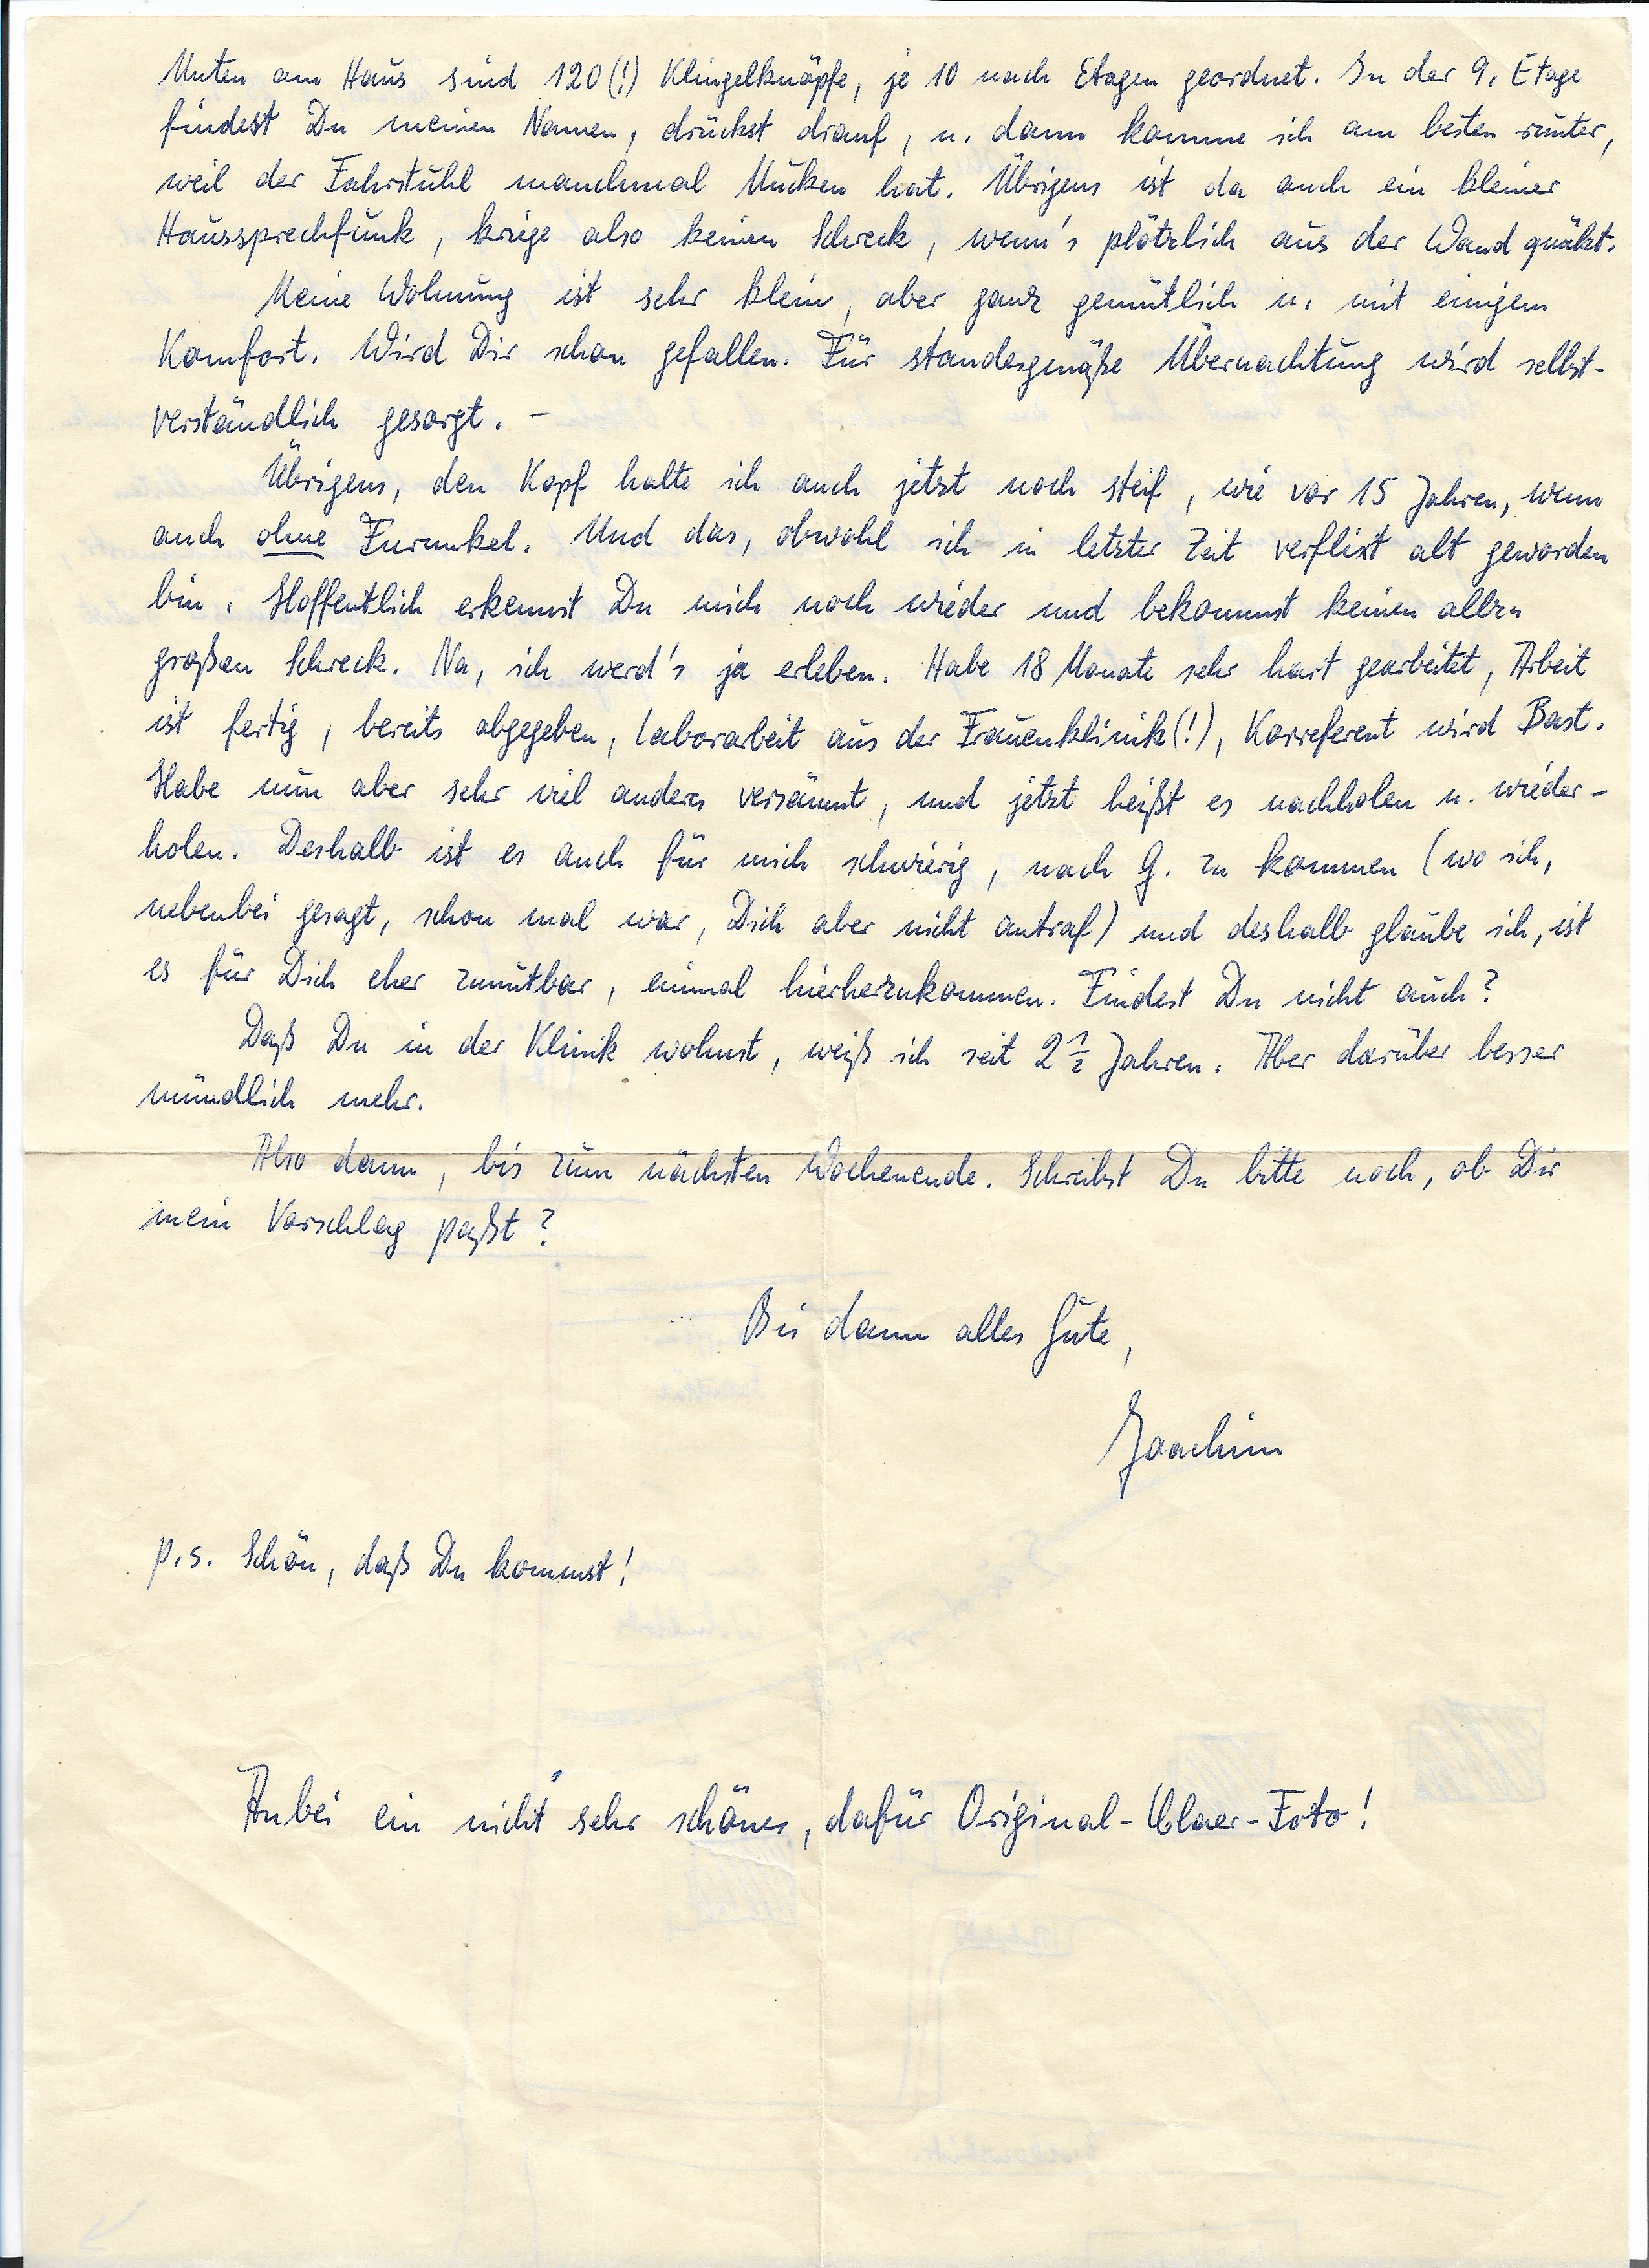 Unten am Haus sind 120(!) Klingelknöpfe, je 10 nach Etagen geordnet. In der 9. Etage
findest Du meinen Namen, drückst drauf, u. dann komme ich am besten runter,
weil der Fahrstuhl manchmal Mucken hat. Übrigens ist da auch ein kleiner
Haussprechfunk, kriege also keinen Schreck, wenn's plötzlich aus der Wand quäkt.
Meine Wohnung ist sehr klein, aber ganz gemütlich u. mit einigem
Komfort. Wird Dir schon gefallen. Für standesgmäße Übernachtung wird selbst-
verständlich gesorgt. –
Übrigens, den Kopf halte ich auch jetzt noch steif, wie vor 15 Jahren, wenn
auch ohne Furunkel. Und das, obwohl ich in letzter Zeit verflixt alt geworden
bin. Hoffentlich erkennst Du mich noch wieder und bekommst keinen allzu
großen Schreck. Na, ich werd's ja erleben. Habe 18 Monate sehr hart gearbeitet, Arbeit
ist fertig, bereits abgegeben, Laborarbeit aus der Frauenklinik(!), Korreferent wird Bast.
Habe nun aber sehr viel anderes versäumt, und jetzt heißt es nachholen u. wieder-
holen. Deshalb ist es auch für mich schwierig, nach G. zu kommen (wo ich,
nebenbei gesagt, schon mal war, Dich aber nicht antraf) und deshalb glaube ich, ist
es für Dich eher zumutbar, einmal hierherzukommen. Findest Du nicht auch?
Daß Du in der Klinik wohnst, weiß ich seit 2 1/2 Jahren. Aber darüber besser
mündlich mehr.
Also dann, bis zum nächsten Wochenende. Schreibst Du bitte noch, ob Dir
mein Vorschlag paßt?
Bis dann alles Gute,
Joachim
p.s. Schön, daß Du kommst!
Anbei ein nicht sehr schönes, dafür Original-Foto!